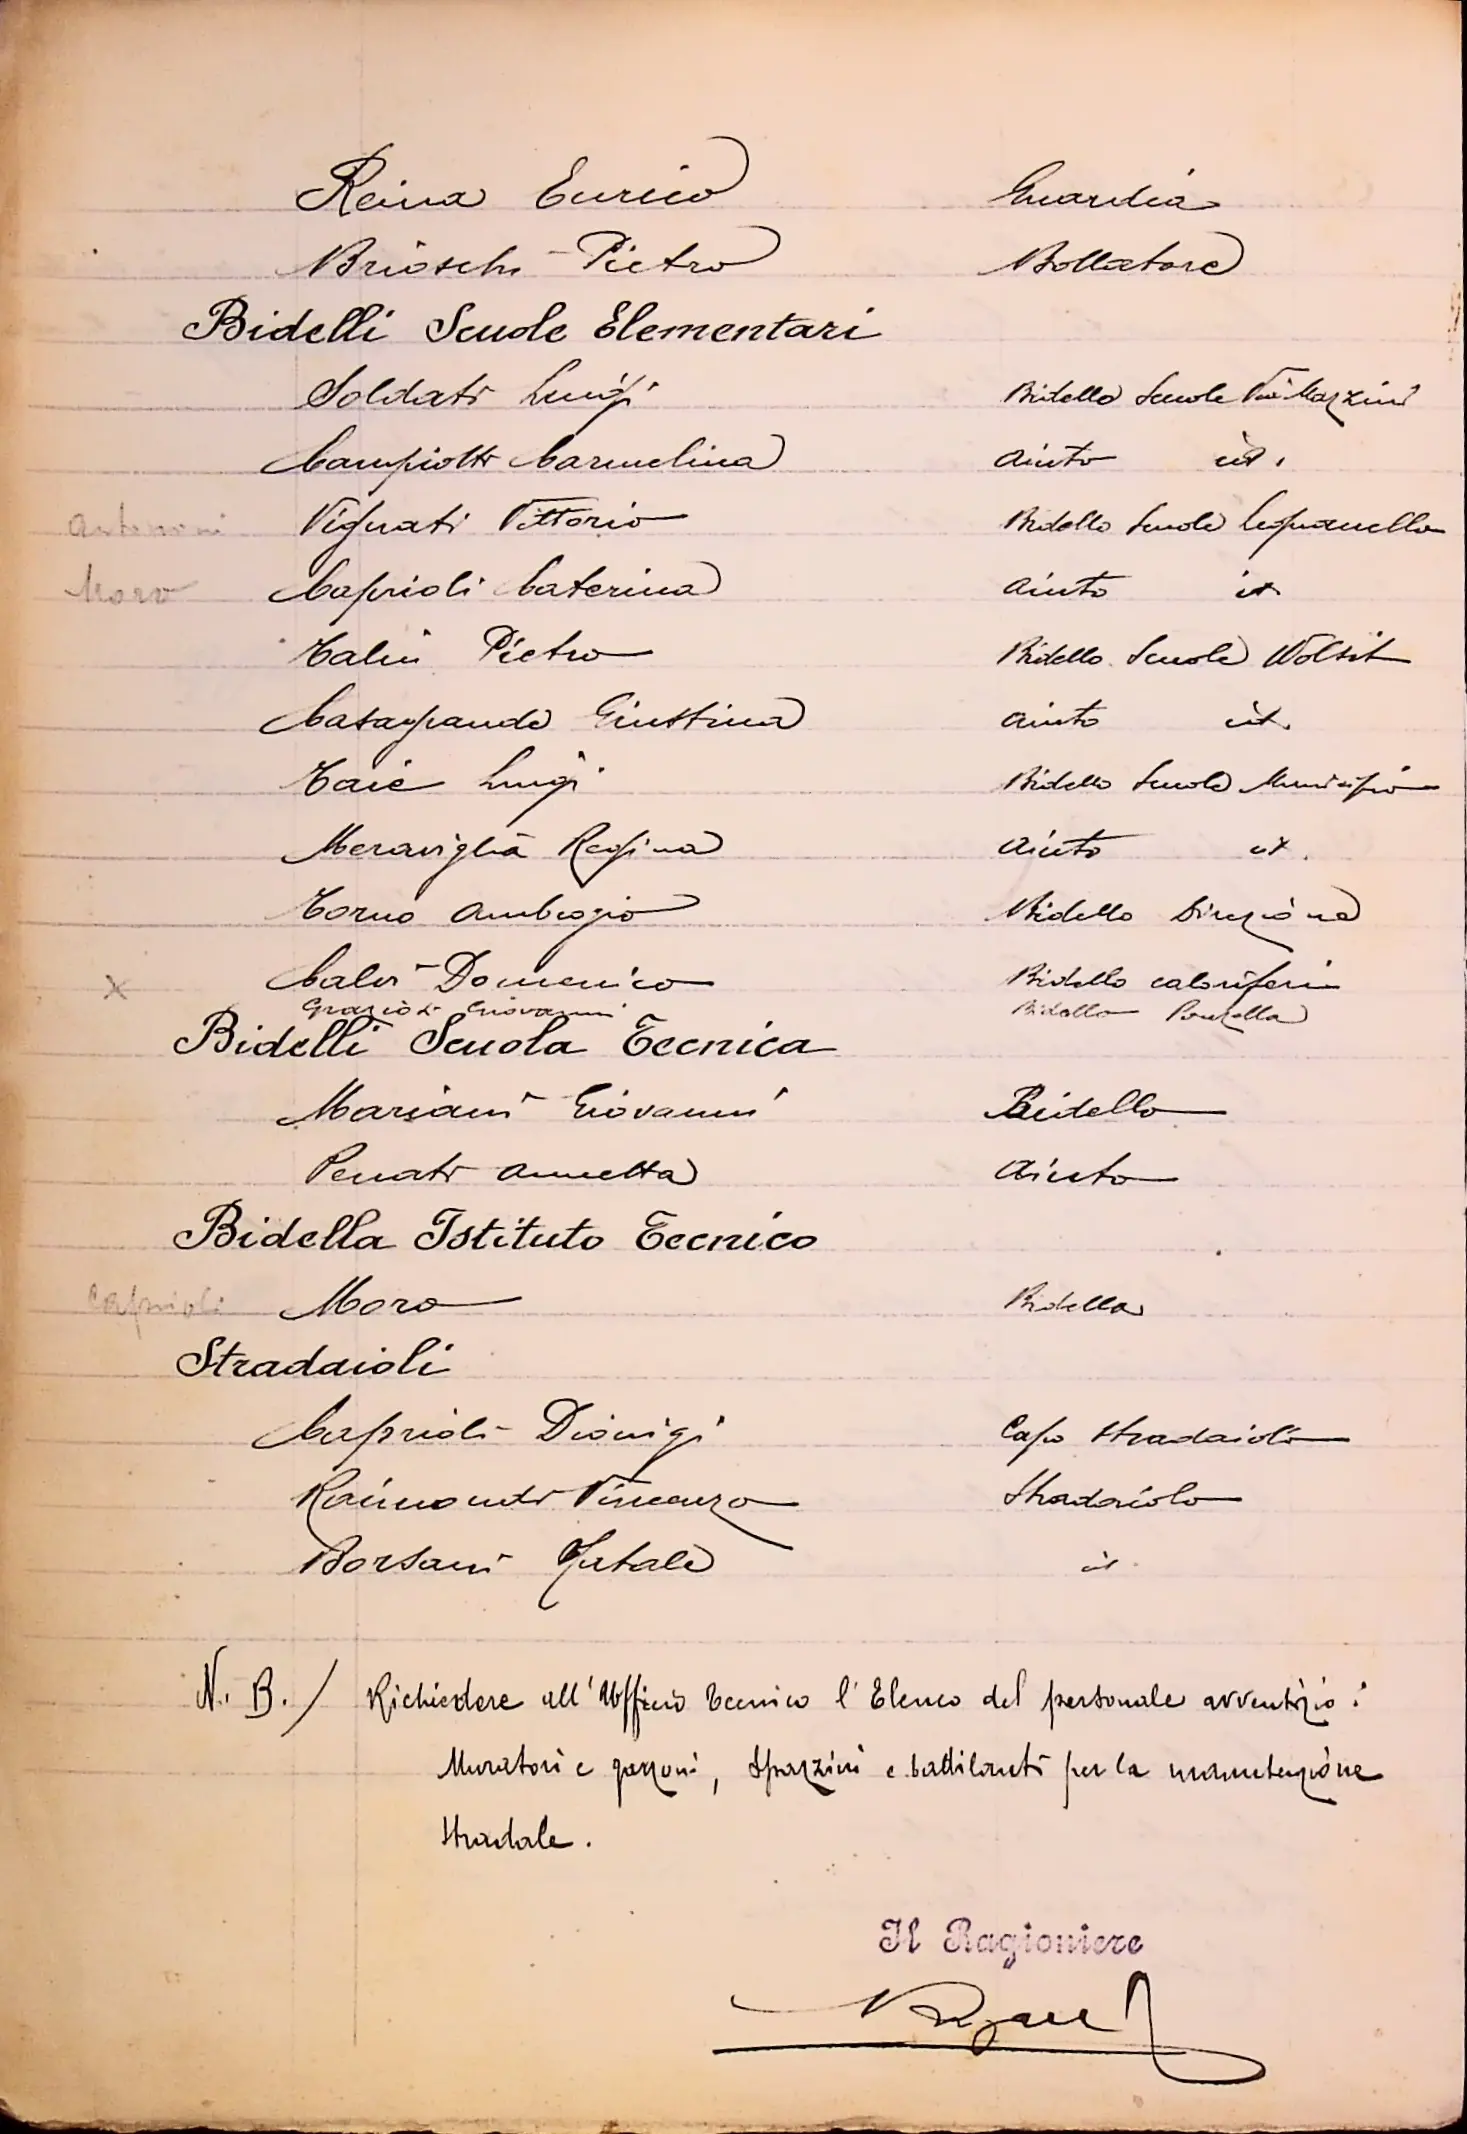 Reina Enrico Guardia
Brioschi Pietro Bollatore
Bidelli Scuole Elementari
Soldati Luigi Bidello Scuole Via Mazzini
Campiotti Carmelina Aiuto id.
Antonini Vignati Vittorio Bidello Scuole Legnanello
Moro Caprioli Caterina Aiuto id
Pietro Bidello Scuole Wolsit
Casagrande Giustina Aiuto id.
Luigi Bidello Scuole Municipio
Meraviglia Regina Aiuto id.
Torno Ambrogio Bidello Direzione
x Calvi Domenico Bidello caloriferi
Grazioli Giovanni Bidello Ponzella
Bidelli Scuola Tecnica
Mariani Giovanni Bidello
Penati Annetta Aiuto
Bidella Istituto Tecnico
Caprioli Moro Bidella
Stradaioli
Caprioli Dionigi Capo Stradaiolo
Raimondi Vincenzo Stradaiolo
Borsani Natale id
N. B. / Richiedere all'Ufficio Tecnico l'Elenco del personale avventizio:
Muratori e garzoni, Spazzini e battilanti per la manutenzione
stradale.
Il Ragioniere